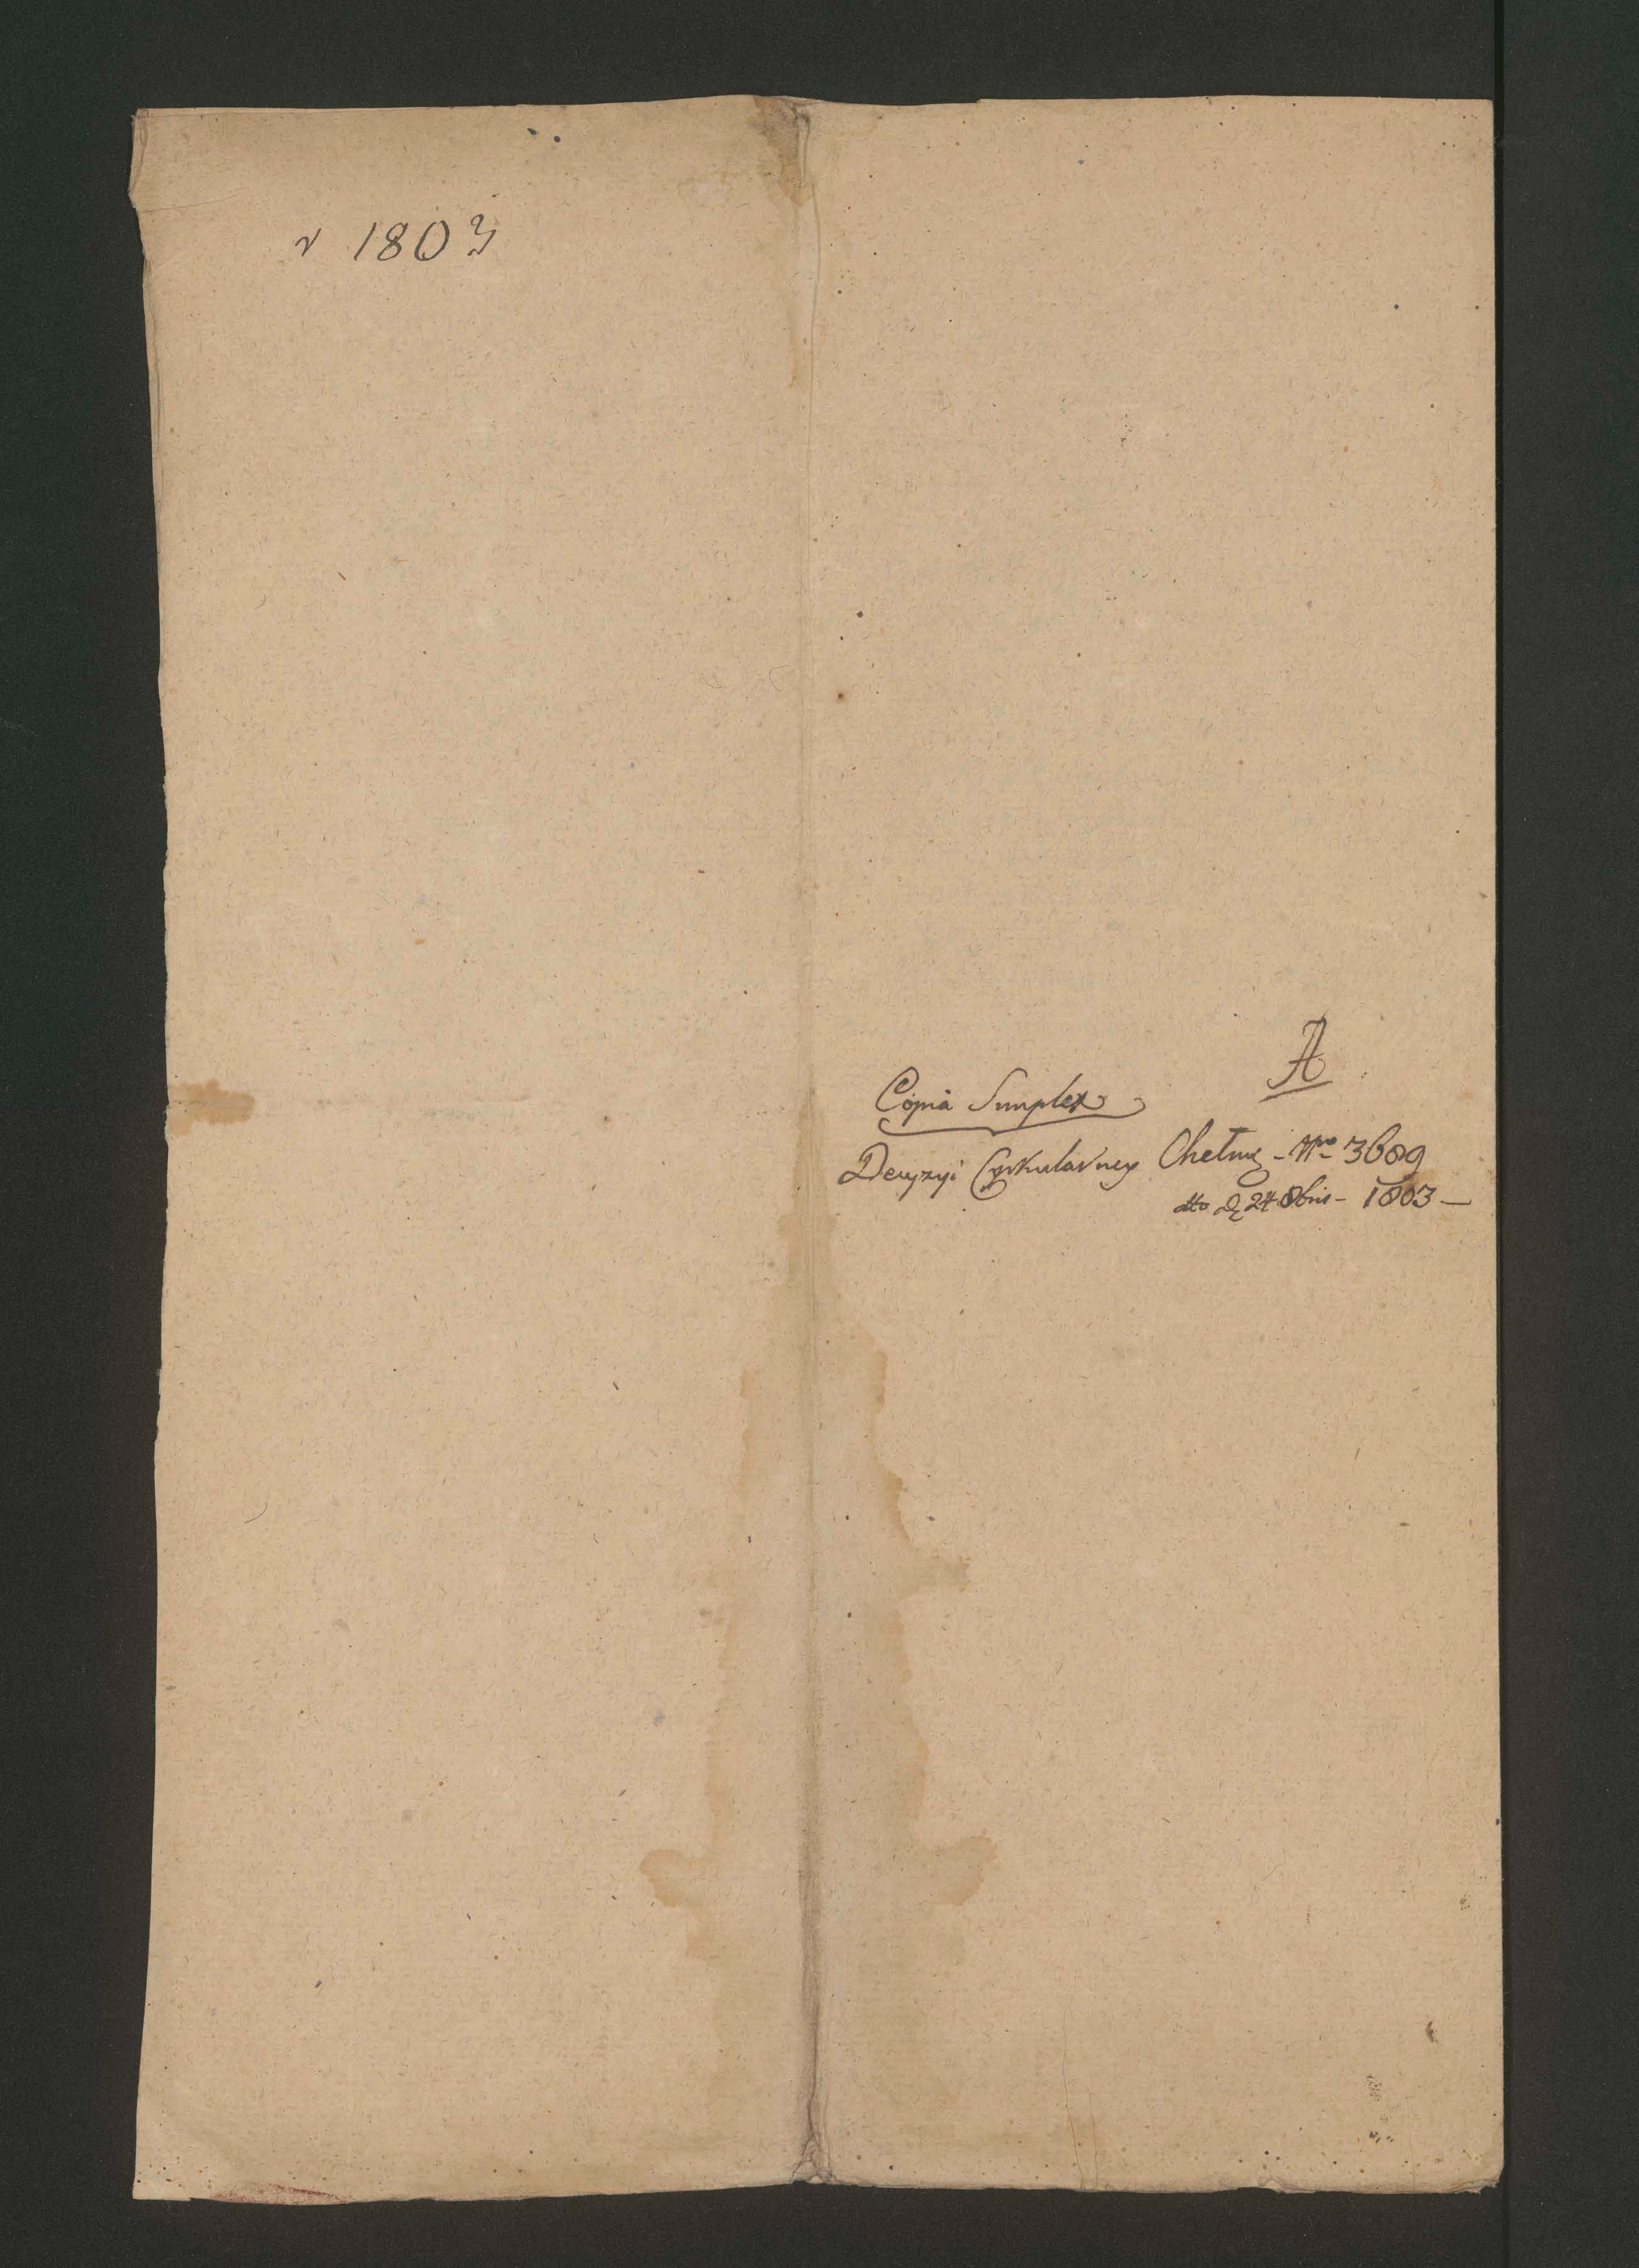 r 1803
A
Copia Simplex
Decyzyi Cyrkularney Chełmź - Nro 3689
dto d 24 8bris - 1803 -